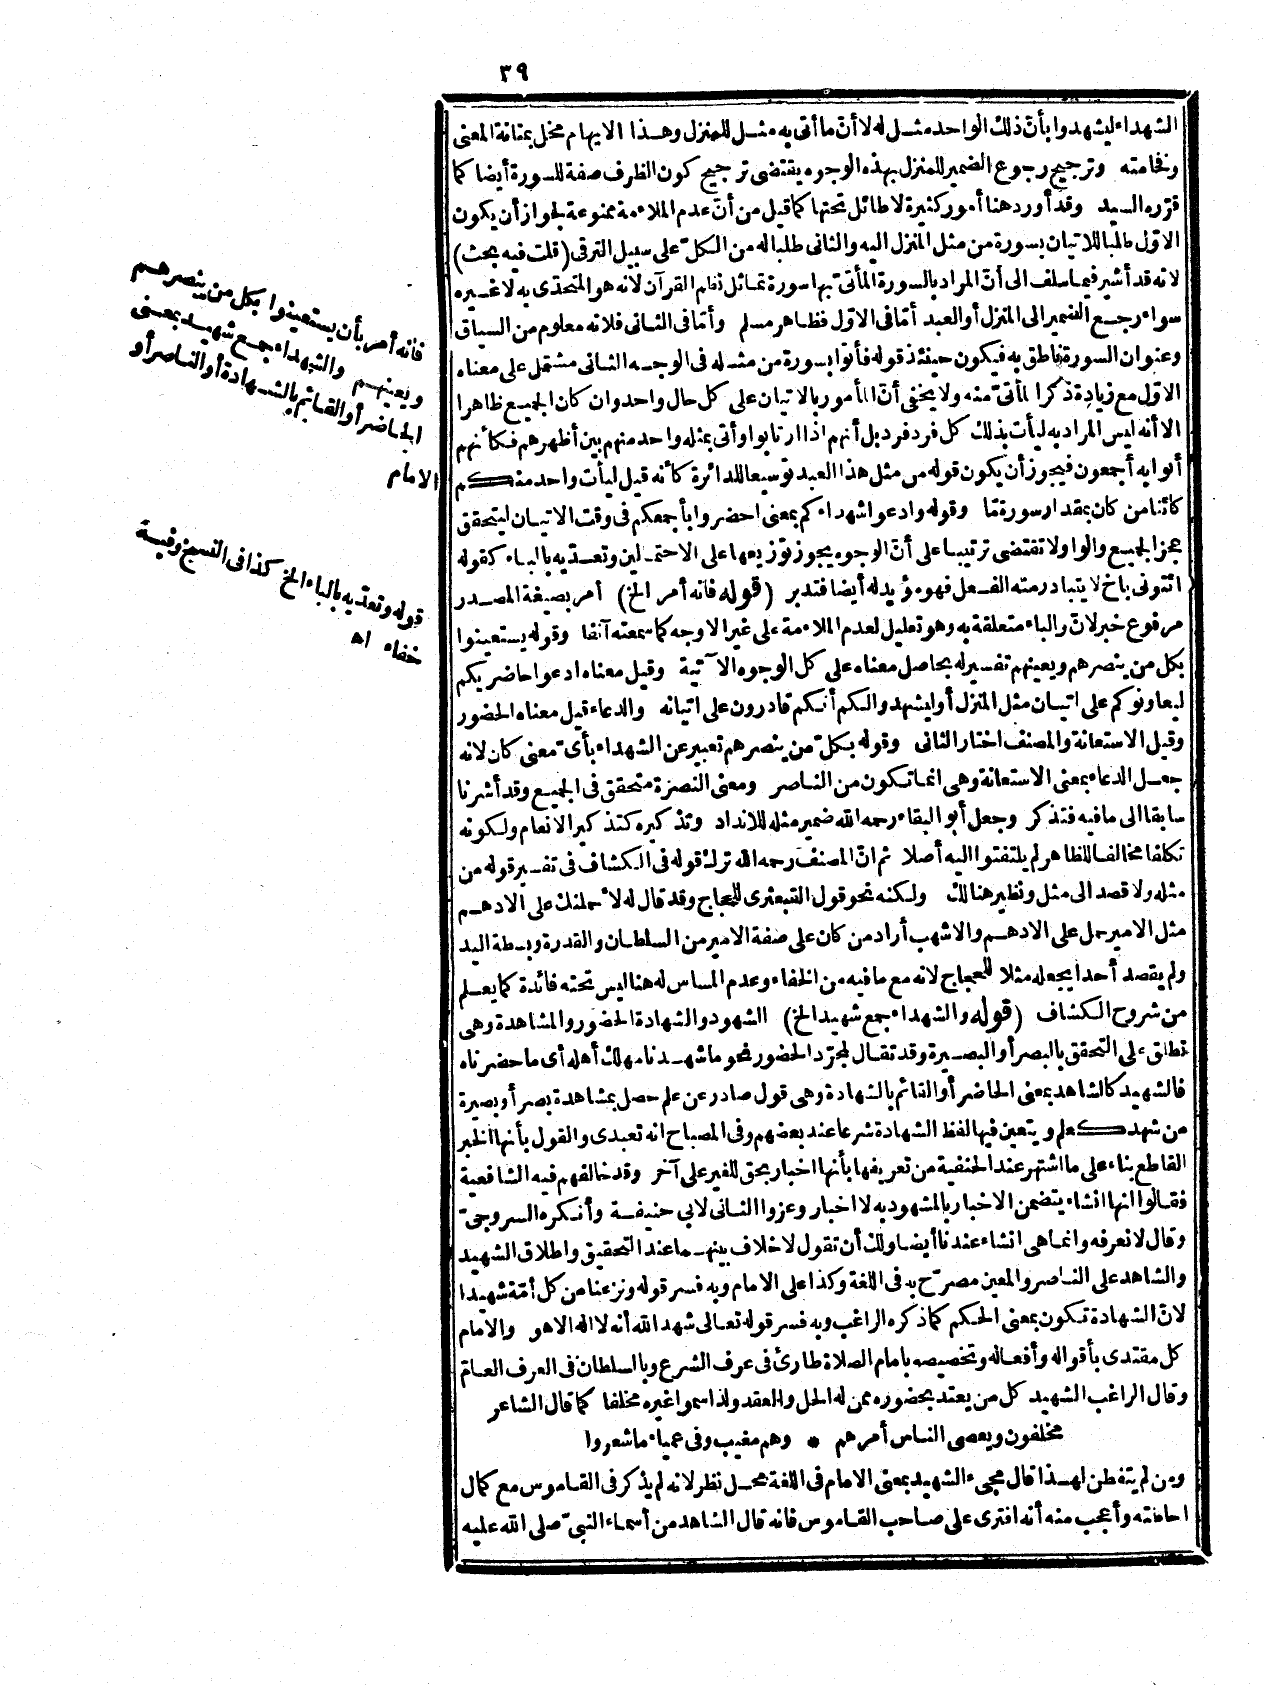 ٣٩
الشهداء ليشهدوا بأن ذلك الواحد مثله لا أن ما أتى به مثل للمنزل وهذا الايهام مخل بمتانة المعنى
وفخامته وترجيح رجوع الضمير للمنزل بهذه الوجوه يقتضى ترجيح كون الظرف صفة للسورة أيضا كما
قرره السيد وقد أورد هنا أمور كثيرة لا طائل تحتها كما قيل من أن عدم الملاءمة ممنوعة لجواز أن يكون
الاول طالبا للاتيان بسورة من مثل المنزل اليه والثانى طلبا له من الكل على سبيل الترقى (قلت فيه بحث)
لانه قد أشير فيما سلف الى أن المراد بالسورة المأتى بها سورة تماثل نظم القرآن لانه هو المتحدى به لا غيره
سواء رجع الضمير الى المنزل أو العبد أما فى الاول فظاهر مسلم وأما فى الثانى فلانه معلوم من السياق
وعنوان السورة ناطق به فيكون حينئذ قوله فأتوا بسورة من مثله فى الوجه الثانى مشتمل على معناه
الاول مع زيادة ذكر المأتى منه ولا يخفى أن المأمور بالاتيان على كل حال واحد وان كان الجميع ظاهرا
الا أنه ليس المراد به ليأت بذلك كل فرد فرد بل أنهم اذا ارتابوا وأتى بمثله واحد منهم بين أظهرهم فكأنهم
أتوا به أجمعون فيجوز أن يكون قوله من مثل هذا العبد توسيعا للدائرة كأنه قيل ليأت واحد منكم
كائنا من كان بمقدار سورة ما وقوله وادعوا شهداءكم بمعنى احضروا بأجمعكم فى وقت الاتيان ليتحقق
عجز الجميع والواو لا تقتضى ترتيبا على أن الوجوه يجوز توزيعها على الاحتمالين وتعديه بالباء كقوله
ائتونى باخ لا يتبادر منه الفعل فهو مؤيد له أيضا فتدبر (قوله فانه أمر الخ) أمر بصيغة المصدر
مرفوع خبر لان والباء متعلقة به وهو تعليل لعدم الملاءمة على غير الاوجه كما سمعته آنفا وقوله يستعينوا
بكل من ينصرهم ويعينهم تفسير له بحاصل معناه على كل الوجوه الآتية وقيل معناه ادعوا حاضريكم
ليعاونوكم على اتيان مثل المنزل أو ليشهدوا لكم أنكم قادرون على اتيانه والدعاء قيل معناه الحضور
وقيل الاستعانة والمصنف اختار الثانى وقوله بكل من ينصرهم تعبير عن الشهداء بأى معنى كان لانه
جعل الدعاء بمعنى الاستعانة وهى انما تكون من الناصر ومعنى النصرة متحقق فى الجميع وقد أشرنا
سابقا الى ما فيه فتذكر وجعل أبو البقاء رحمه الله ضمير مثله للانداد وتذكيره كتذكير الانعام ولكونه
تكلفا مخالفا للظاهر لم يلتفتوا اليه أصلا ثم ان المصنف رحمه الله ترك قوله فى الكشاف فى تفسير قوله من
مثله ولا قصد الى مثل ونظير هنالك ولكنه نحو قول القبعثرى للحجاج وقد قال له لاحملنك على الادهم
مثل الامير حمل على الادهم والاشهب أراد من كان على صفة الامير من السلطان والقدرة وبسطة اليد
ولم يقصد أحدا يجعله مثلا للحجاج لانه مع ما فيه من الخفاء وعدم المساس له هنا ليس تحته فائدة كما يعلم
من شروح الكشاف (قوله والشهداء جمع شهيد الخ) الشهود والشهادة الحضور والمشاهدة وهى
تطلق على التحقق بالبصر أو البصيرة وقد تقال لمجرد الحضور نحو ما شهدنا مهلك أهله أى ما حضرناه
فالشهيد كالشاهد بمعنى الحاضر أو القائم بالشهادة وهى قول صادر عن علم حصل بمشاهدة بصر أو بصيرة
من شهد كعلم ويتعين فيها لفظ الشهادة شرعا عند بعضهم وفى المصباح انه تعبدى والقول بأنها الخبر
القاطع بناء على ما اشتهر عند الحنفية من تعريفها بأنها اخبار بحق للغير على آخر وقد خالفهم فيه الشافعية
فقالوا انها انشاء يتضمن الاخبار بالمشهود به لا اخبار وعزوا الثانى لابى حنيفة وأنكره السروجى
وقال لا نعرفه وانما هى انشاء عندنا أيضا ولك أن تقول لا خلاف بينهما عند التحقيق واطلاق الشهيد
والشاهد على الناصر والمعين مصرح به فى اللغة وكذا على الامام وبه فسر قوله ونزعنا من كل أمة شهيدا
لان الشهادة تكون بمعنى الحكم كما ذكره الراغب وبه فسر قوله تعالى شهد الله أنه لا اله الا هو والامام
كل مقتدى بأقواله وأفعاله وتخصيصه بامام الصلاة طارئ فى عرف الشرع وبالسلطان فى العرف العام
وقال الراغب الشهيد كل من يعتد بحضوره ممن له الحل والعقد ولذا سموا غيره مخلفا كما قال الشاعر
مخلفون ويعصى الناس أمرهم * وهم مغيب وفى عمياء ما شعروا
ومن لم يتفطن لهذا قال مجىء الشهيد بمعنى الامام فى اللغة محل نظر لانه لم يذكر فى القاموس مع كمال
احاطته وأعجب منه أنه افترى على صاحب القاموس فانه قال الشاهد من أسماء النبى صلى الله عليه
فانه أمر بأن يستعينوا بكل من ينصرهم
ويعينهم والشهداء جمع شهيد بمعنى
الحاضر أو القائم بالشهادة أو الناصر أو
الامام
قوله وتعديه بالباء الخ كذا فى النسخ وفيه
خفاء اه